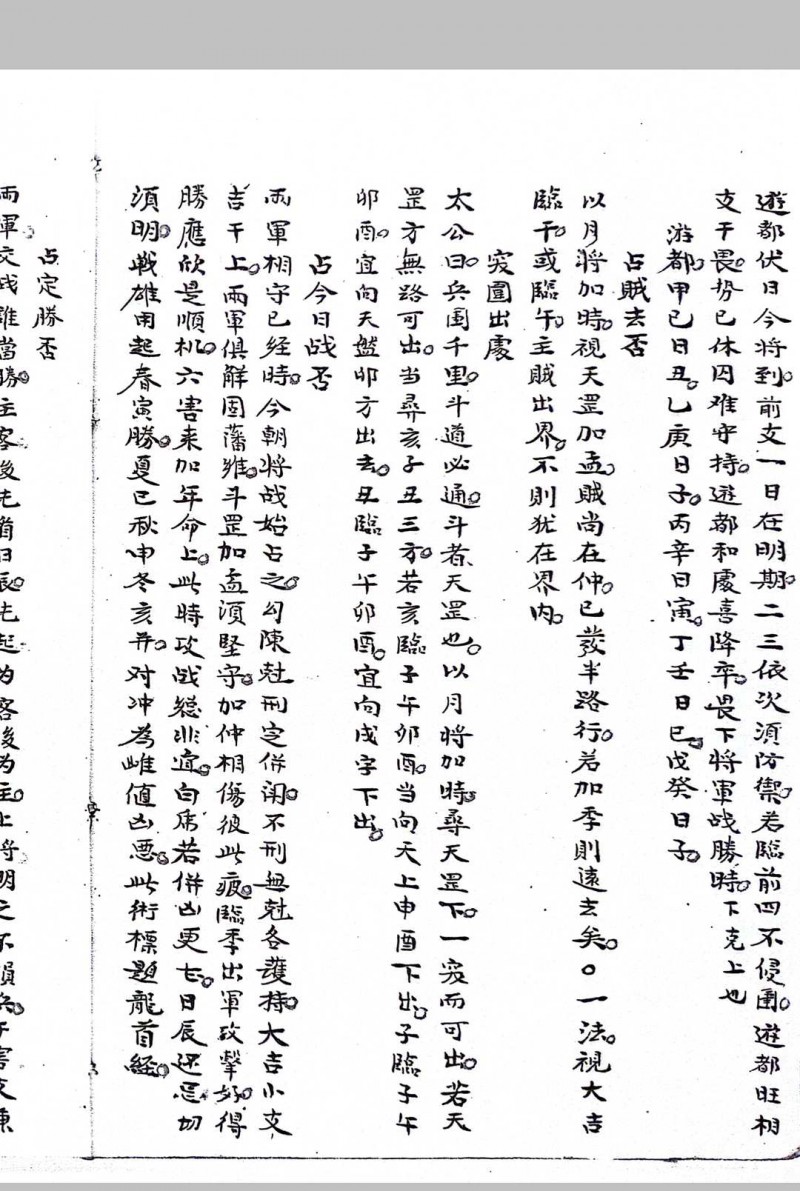 遊都伏日今將到。前支一日在明期。二三依次須防禦。若臨前四不侵圉。遊都旺相
支干畏。势已休囚难守持。遊都和處喜降卒。畏下將軍战勝時。下克上也
游都。甲己日丑。乙庚日子。丙辛日寅。丁壬日巳。戊癸日子。
占賊去否
以月將加時。視天罡加孟。賊尚在仲。已發半路行。若加季則遠去矣。○一法。視大吉
臨干。或臨午。主賊出界。不則犹在界内。
突圍出處
太公曰。兵围千里。斗道必通。斗者天罡也。以月將加時。尋天罡下。一突而可出。若天
罡方無路可出。当尋亥子丑三方。若亥臨子午卯酉。当向天上申酉下出。子臨子午
卯酉。宜向天盤卯方出去。丑臨子午卯酉。宜向戌字下出。
占今日战否
兩軍相守已經時。今朝將战始占之。勾陳尅刑定併闲。不刑無尅各護持。大吉小支
吉干上。兩軍俱解固藩雖。斗罡加孟須堅守。加仲相傷彼此疲。臨季出軍攻擊好。得
勝應欣是順机。六害来加年命上。此時攻战總非宜。白虎若併凶更七。日辰还忌切
須明。戰雄用起春寅勝。夏巳秋申冬亥并。对冲為雌值凶悪。此術標題龍首經。
占定勝否
兩軍交战誰當勝。主客後先看日辰。先起為客後為主。上將明之不損兵。干害支